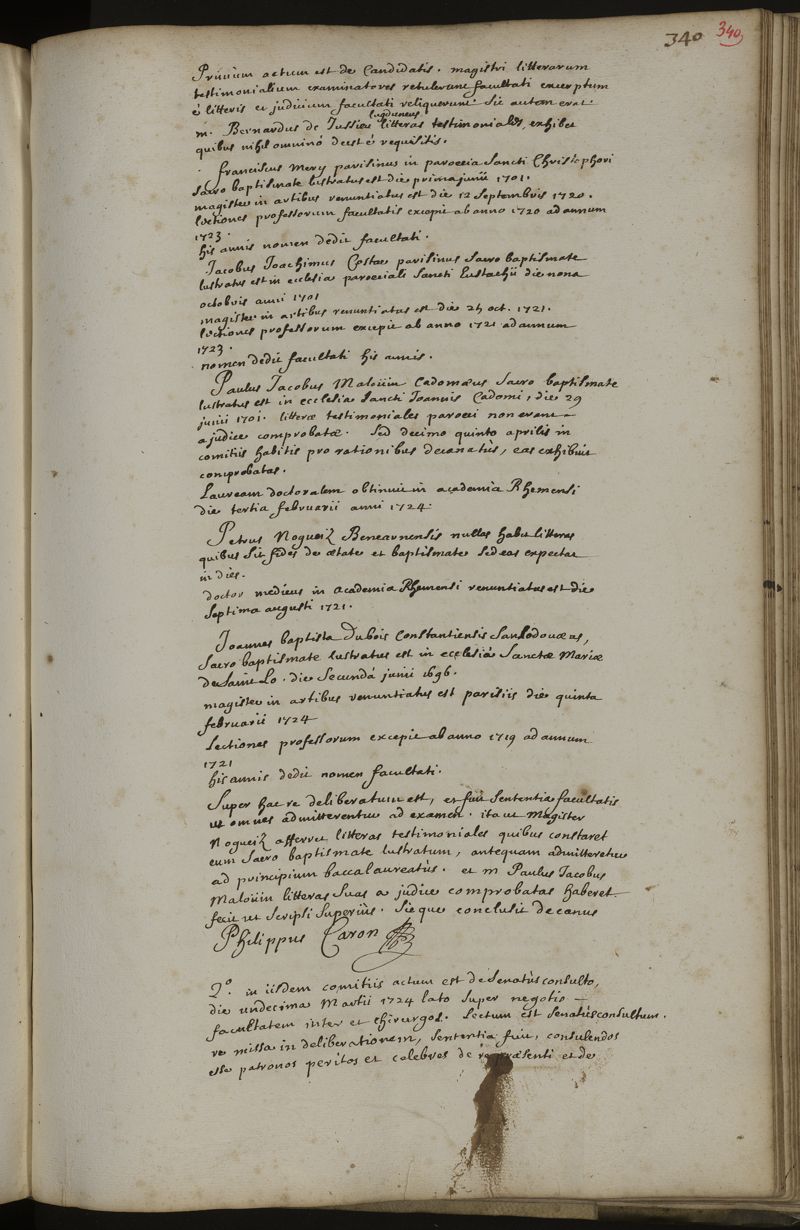 340 340
Primum actum est de Candidatis. magistri litterarum
testimonialium examinatores retulerunt facultati exceptum
è litteris et judicium facultati reliquerunt. Sic autem erat
lugduneus
m. Bernardus de Jussieu litteras testimoniales exhibet
quibus nihil omninò deest è requisitis.
franciscus Mery parisinus in paroecia Sancti Christophori
Sacro baptismate lustratus est die prima junii 1701.
magister in artibus renuntiatus est die 12 Septembris 1720.
lectiones professorum facultatis excepit ab anno 1720 ad annum
1723.
his annis nomen dedit facultati.
Jacobus Joachimus Costar parisinus Sacro baptismate
lustratus est in ecclesia paroeciali Sancti Eustachii die nona
octobris anni 1701
magister in artibus renuntiatus est die 2h oct. 1721.
lectiones professorum excepit ab anno 1721 ad annum
1723.
nomen dedit facultati his annis.
Paulus Jacobus Maloüin Cadomæus Sacro baptismate
lustratus est in ecclesia Sancti Joannis Cadomi, die 29
junii 1701. litteræ testimoniales paroeci non erant
a judice comprobatæ. Sed decimo quinto aprilis in
comitiis habitis pro rationibus decanatûs, eas exhibuit
comprobatas.
Lauream doctoralem obtinuit in academiâ Rhemensi
die tertia februarii anni 1724.
Petrus Nogueiz Benearnensis nullas habet litteras
quibus Sit fides de ætate et baptismate Sed eas expectat
in dies.
doctor medicus in academia Rhemensi renuntiatus est die
Septima augusti 1721.
Joannes baptista Dubois Constantiensis Sanlodovæus,
Sacro baptismate lustratus est in ecclesiâ Sanctæ Mariæ
de Saint Lo. die Secundâ junii 1696.
magister in artibus renuntiatus est parisiis die quinta
februarii 1724
Lectiones professorum excepit ab anno 1719 ad annum
1721
his annis dedit nomen facultati.
Super hac re deliberatum est, et fuit Sententia facultatis
ut omnes admitterentur ad examen. ita ut Magister
Nogueiz afferret litteras testimoniales quibus constaret
eum Sacro baptismate lustratum, antequam admitteretur
ad principium baccalaureatûs. et m Paulus Jacobus
Maloüin litteras Suas a judice comprobatas haberet
fecit ut Scripsi Superiùs. Sicque conclusit decanus
Philippus Caron
2º. in iisdem comitiis actum est de Senatûs consulto,
die undecima Martii 1724 lato Super negotio
facultatem inter et chirurgos. Lectum est Senatûsconsultum.
re missa in deliberationem, Sententia fuit, consulendos
esse patronos peritos et celebres de re præsenti et de